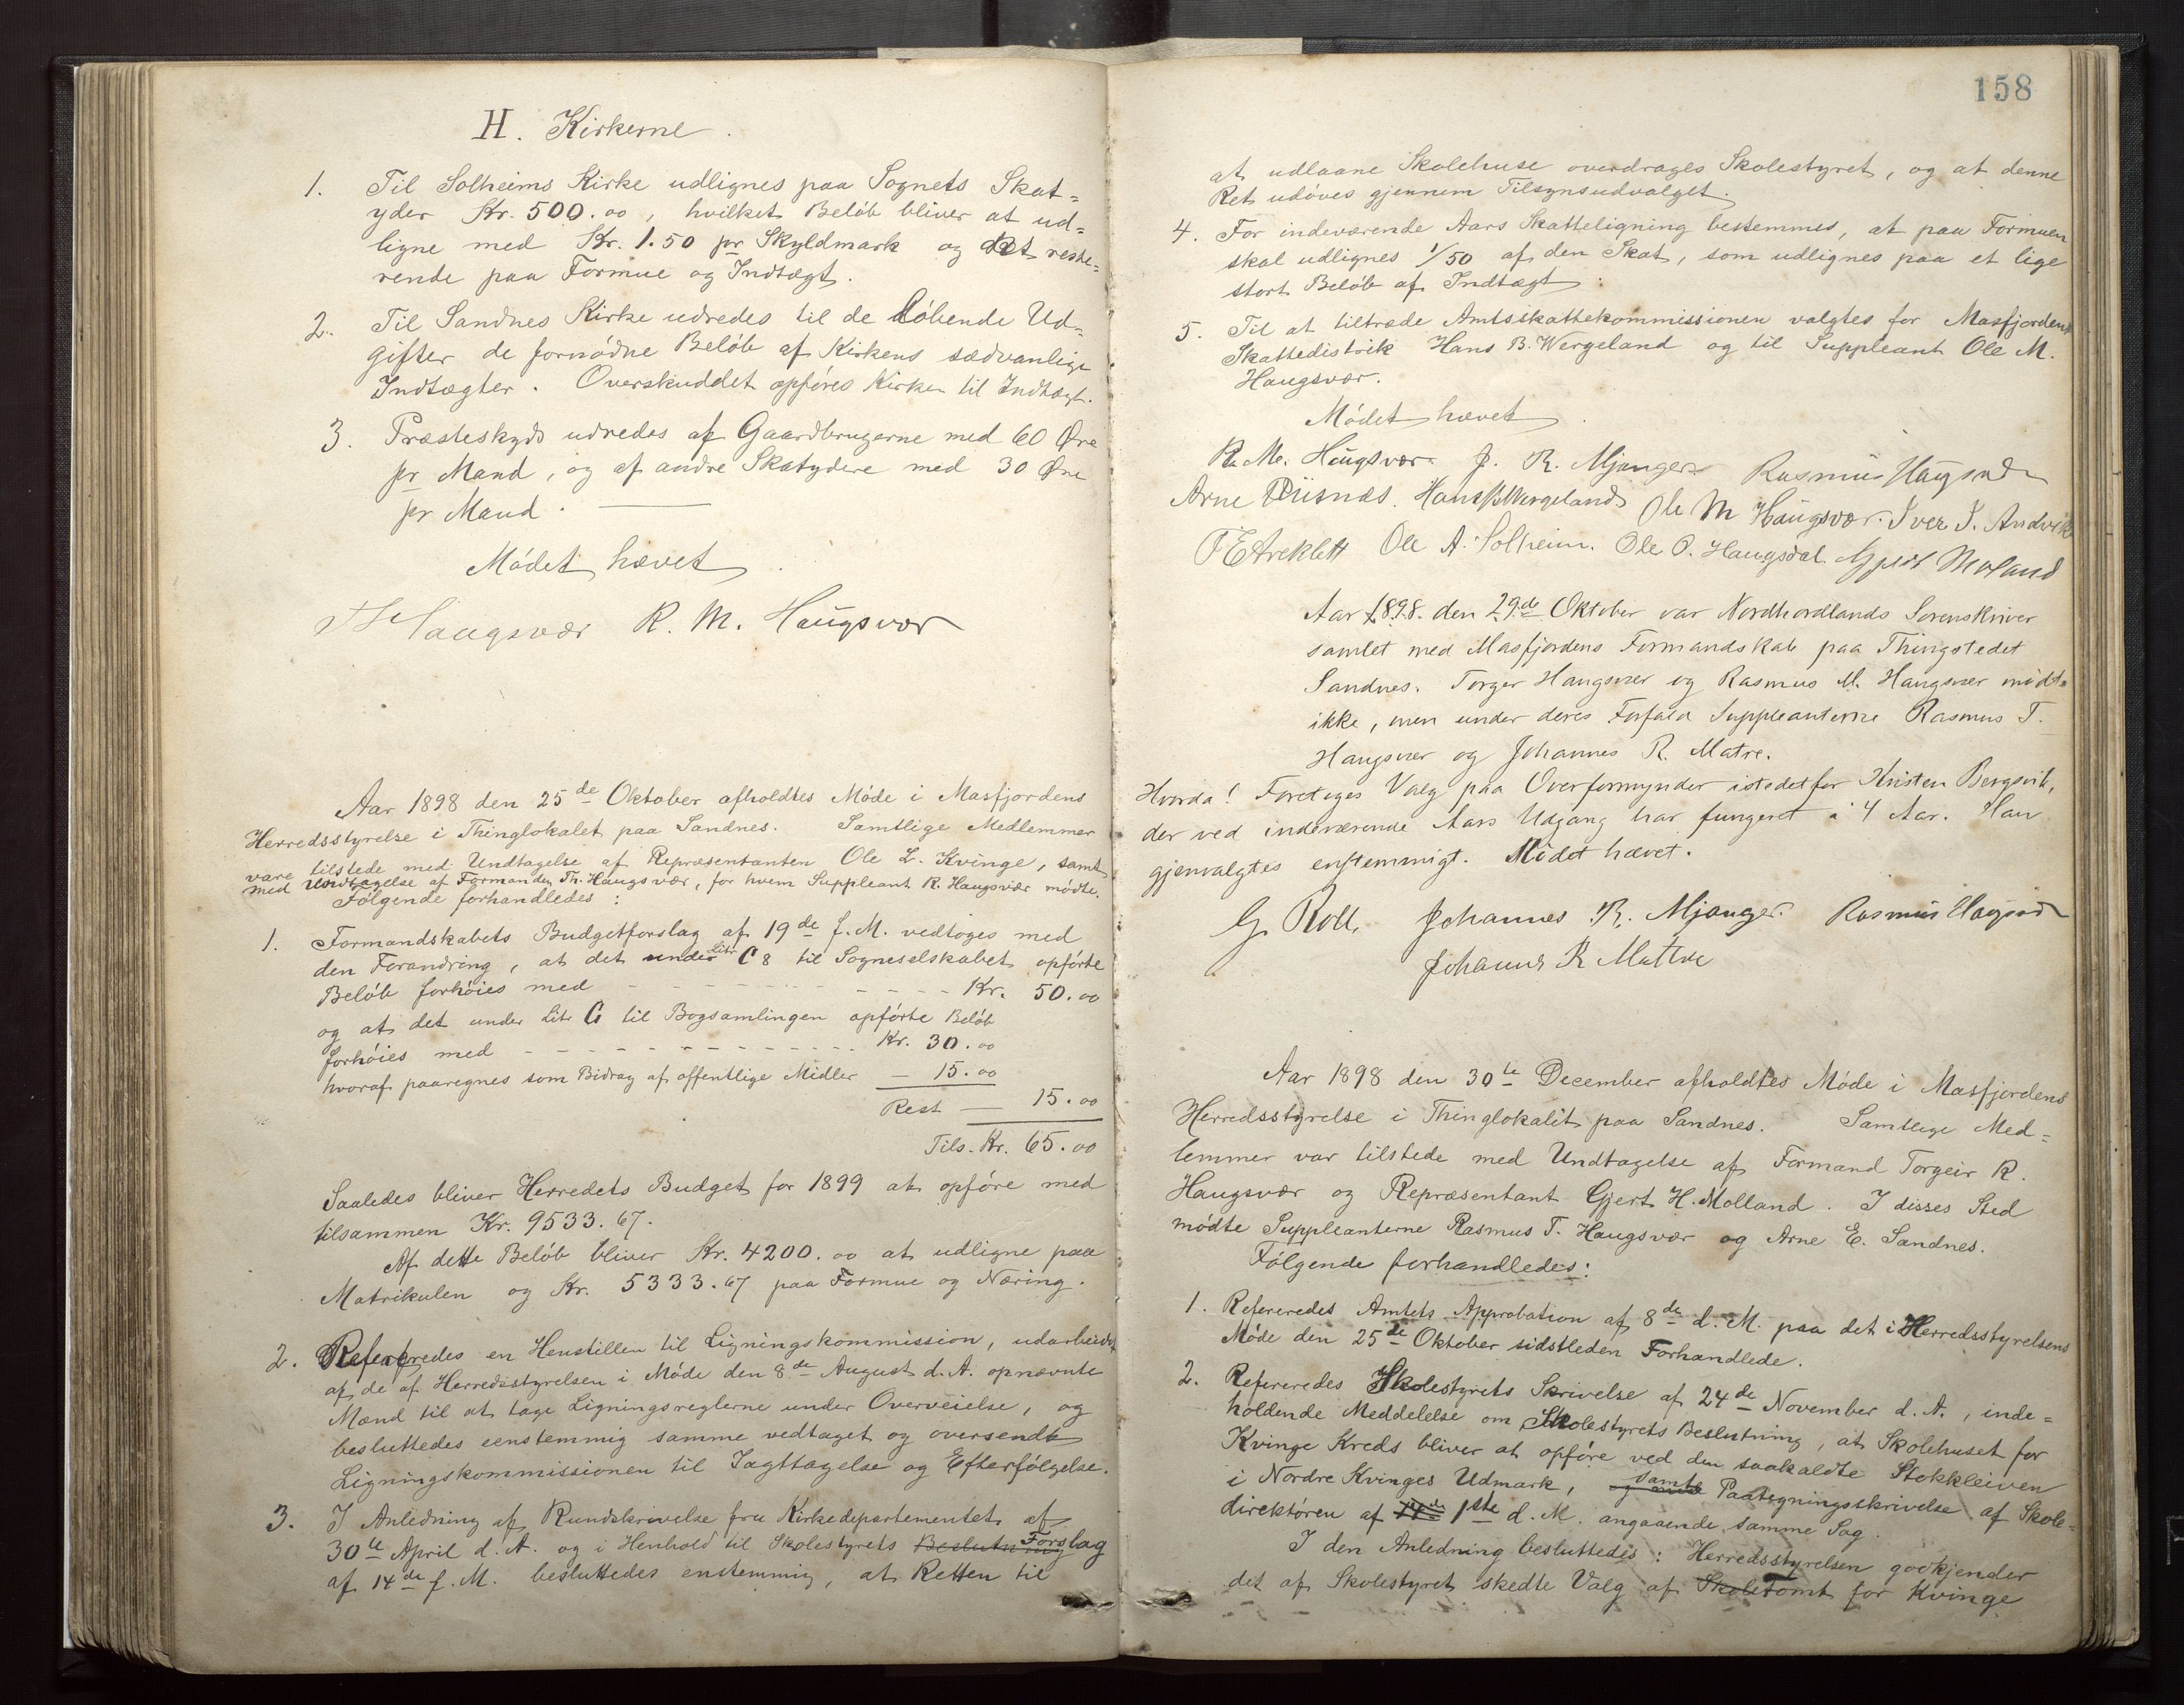 H. Kirkerne.
1. Til Solheims Kirke udlignes paa Sognets Skat=
yder Kr. 500.00, hvilket Beløb bliver at ud=
ligne med Kr. 1.50 pr Skyldmark og det reste=
rende paa Formue og Indtægt.
2. Til Sandnes Kirke udredes til de løbende Ud=
gifter de fornødne Beløb af Kirkens sædvanlige
Indtægter. Overskuddet opføres Kirken til Indtægt.
3. Præsteskyds udredes af Gaardbrugerne med 60 Øre
pr Mand, og af andre Skatydere med 30 Øre
pr Mand.
Mødet hævet.
Haugsvær R. M. Haugsvær
Aar 1898 den 25de Oktober afholdtes Møde i Masfjordens
Herredsstyrelse i Thinglokalet paa Sandnes. Samtlige Medlemmer
vare tilstede med Undtagelse af Repræsentanten Ole L. Kvinge, samt
med Undtagelse af Formanden Th. Haugsvær, for hvem Suppleant R. Haugsvær mødte.
Følgende forhandledes:
1. Formandskabets Budgetforslag af 19de f. M. vedtoges med
den Forandring, at det under Litr C 8 til Sogneselskabet opførte
Beløb forhøies med - - - - Kr. 50.00
og at det under Litr G til Bogsamlingen opførte Beløb
forhøies med - - - - Kr. 30.00
hvoraf paaregnes som Bidrag af offentlige Midler — 15.00
Rest — 15.00
Tils. Kr. 65.00
Saaledes bliver Herredets Budget for 1899 at opføre med
tilsammen Kr. 9533.67.
Af dette Beløb bliver Kr. 4200.00 at udligne paa
Matrikulen og Kr. 5333.67 paa Formue og Næring.
2. Refereredes en Henstillen til Ligningskommission, udarbeidet
af de af Herredsstyrelsen i Møde den 8de August d. A. opnævnte
Mænd til at tage Ligningsreglerne under Overveielse, og
besluttedes eenstemmig samme vedtaget og oversendt
Ligningskommissionen til Iagttagelse og Efterfølgelse.
3. I Anledning af Rundskrivelse fra Kirkedepartementet af
30te April d. A. og i Henhold til Skolestyrets Beslutning Forslag
af 14de f. M. besluttedes enstemmig, at Retten til
158
at udlaane Skolehuse overdrages Skolestyret, og at denne
Ret udøves gjennem Tilsynsudvalget.
4. For indeværende Aars Skatteligning bestemmes, at paa Formuen
skal udlignes 1/50 af den Skat, som udlignes paa et lige
stort Beløb af Indtægt.
5. Til at tiltræde Amtsskattekommissionen valgtes for Masfjordens
Skattedistrik Hans B. Wergeland og til Suppleant Ole M.
Haugsvær.
Mødet hævet.
R. M. Haugsvær. J. R. Mjanger Rasmus Haugsvær
Arne Riisnæs. Hans B Wergeland Ole M Haugsvær. Iver I. Andvik
Ole A. Solheim. Ole O. Haugsdal. Gjert Molland
Aar 1898. den 29de Oktober var Nordhordlands Sorenskriver
samlet med Masfjordens Formandskab paa Thingstedet
Sandnes. Torger Haugsvær og Rasmus M. Haugsvær mødte
ikke, men under deres Forfald Suppleanterne Rasmus T.
Haugsvær og Johannes R. Matre.
Hvorda! Foretoges Valg paa Overformynder istedetfor Kristen Bergsvik,
der ved indeværende Aars Udgang har fungeret i 4 Aar. Han
gjenvalgtes enstemmigt. Mødet hævet.
G. Roll, Johannes R. Mjanger. Rasmus Haugsvær
Johannes R Mattre
Aar 1898 den 30te December afholdtes Møde i Masfjordens
Herredsstyrelse i Thinglokalet paa Sandnes. Samtlige Med=
lemmer var tilstede med Undtagelse af Formand Torgeir R.
Haugsvær og Repræsentant Gjert H. Molland. I disses Sted
mødte Suppleanterne Rasmus T. Haugsvær og Arne E. Sandnes.
Følgende forhandledes:
1. Refereredes Amtets Approbation af 8de d. M. paa det i Herredsstyrelsens
Møde den 25de Oktober sidstleden Forhandlede.
2. Refereredes Skolestyrets Skrivelse af 24de November d. A., inde=
holdende Meddelelse om Skolestyrets Beslutning, at Skolehuset for
Kvinge Kreds bliver at opføre ved den saakaldte Stokkleiven
i Nordre Kvinges Udmark, og med samt Paategningsskrivelse af Skole=
direktøren af 1ste d. M. angaaende samme Sag.
I den Anledning besluttedes: Herredsstyrelsen godkjender
det af Skolestyret skedte Valg af Skoletomt for Kvinge